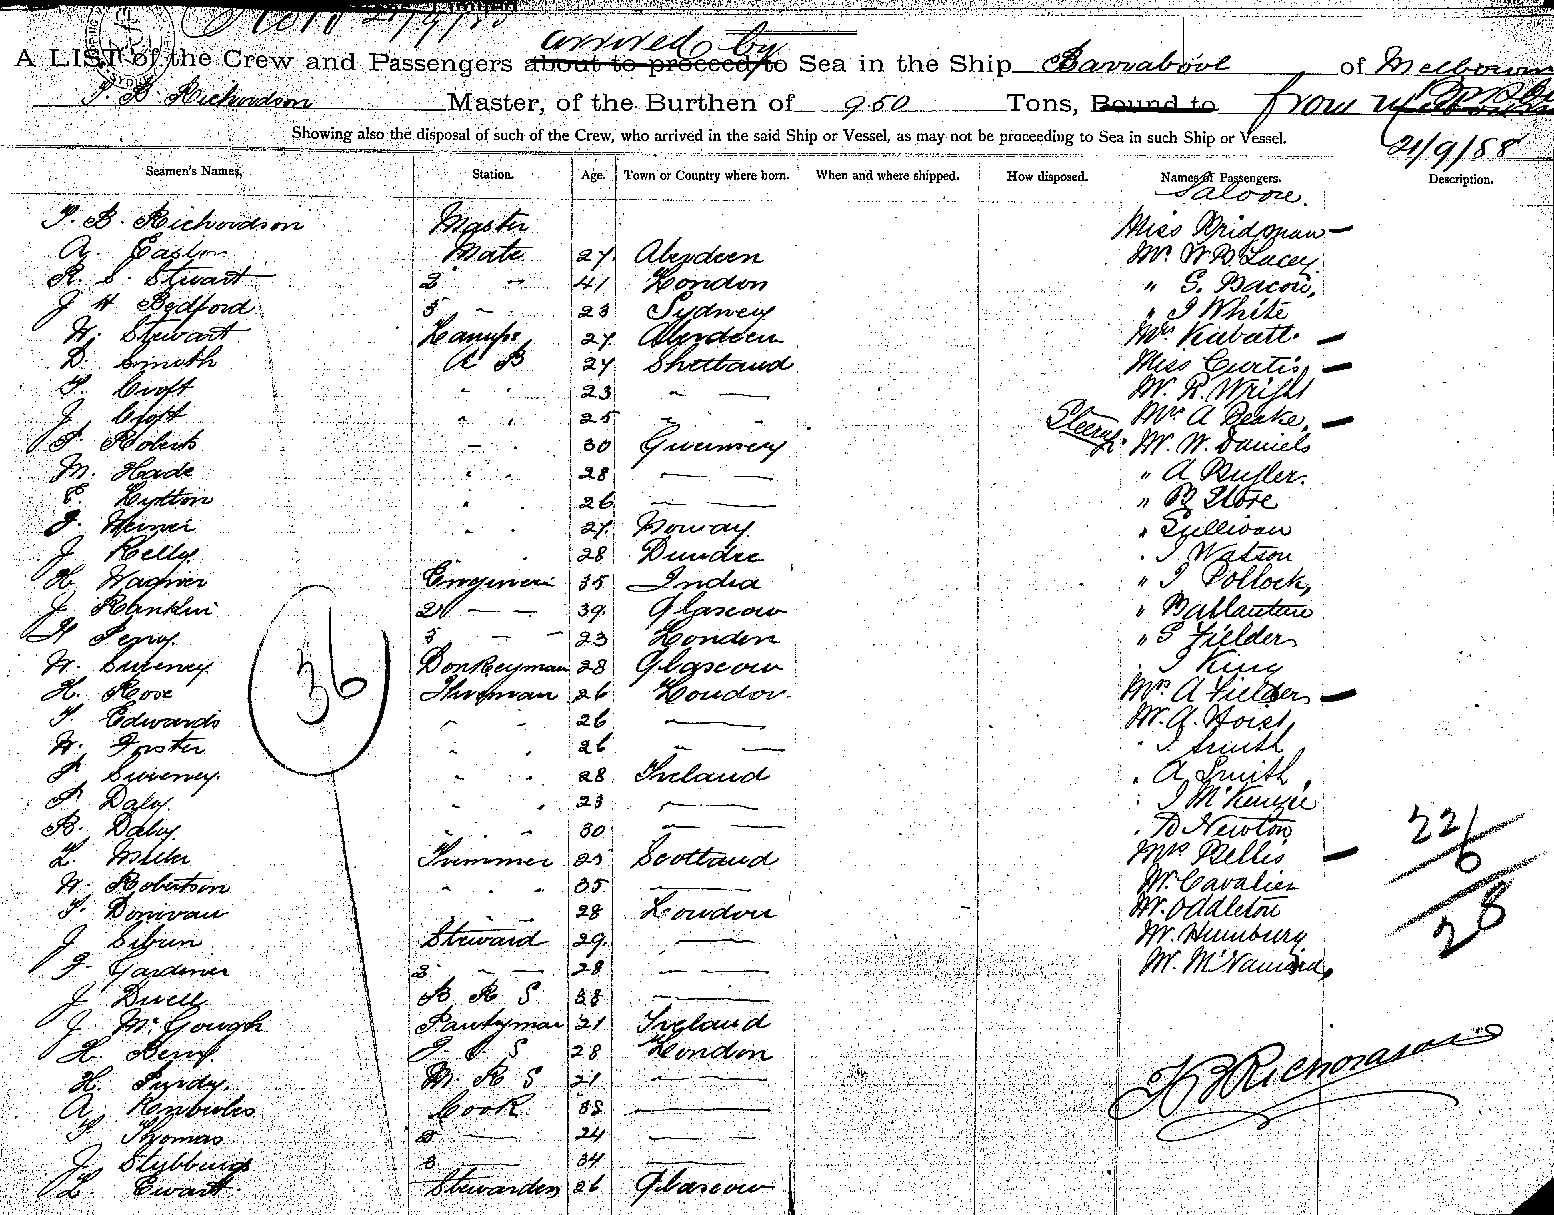 24/9/88
arrived by
A LIST of the Crew and Passengers about to proceed to Sea in the Ship Barrabool of Melbourne
T. B. Richardson Master, of the Burthen of 950 Tons, Bound to from
Showing also the disposal of such of the Crew, who arrived in the said Ship or Vessel, as may not be proceeding to Sea in such Ship or Vessel.
24/9/88
Seamen's Names, Station. Age. Town or Country where born. When and where shipped. How disposed. Names of Passengers. Description.
Saloon.
T. B. Richardson Master Miss Bridgman —
A. Easton Mate 27 Aberdeen Mr. W B Lacey
R. S. Stewart 2 " 41 London " S. Bacon,
J H Bedford 3 " 23 Sydney " J White
W. Stewart Lamps 27 Aberdeen Mrs Kabatt —
D. Smith A B 27 Shetland Miss Curtis —
T. Croft " " 23 " — Mr. R. Wright
J. Croft " " 25 " — Mrs A Deake, —
T. Roberts " " 30 Guernsey Steerge. Mr. W. Daniels
M. Hade " " 28 — — " A Butler.
E. Lytton " " 26 — — " B Store
J. " " 27 Norway " Sullivan
J. Kelly " " 28 Dundee " J Watson
H. Wagner Engineer 35 India " J Pollock,
J. Ranklin 2 — — 39 Glascow " Ballantine
H Perry 3 — — 23 London " S Fielder
W. Sweeney Donkeyman 28 Glascow " J King
H. Rose Fireman 26 London Mrs A Fielder —
T. Edwards " " 26 — Mr. A. Hoist
W. Forster " " 26 " — " J Smith
P. Sweeney. " " 28 Ireland " A Smith
P. Daly. " " 23 — " J McKenzie
B. Daly. " " " 30 — — " D Newton
L. Trimmer 25 Scotland Mrs Bellis —
W. Robertson " " " 35 — Mr. Cavalier
T. Donivan " " " 28 London Mr. Oddleton
J. Sibun Steward 29 — Mr. Humbury
J. Gardiner 2 — — 28 — — Mr. McNamara,
J. Divell B R S 38 —
J. McGough Pantryman 21 Ireland
H. Berry J. S 28 London
H. Purdy. M. R S 21 — —
A. Cook 38 —
T. Thomas 2 — 24 — —
J. Stubbings 3 — 34 — —
L. Ewart Stewardess 26 Glascow
36
22
6
28
T B Richardson